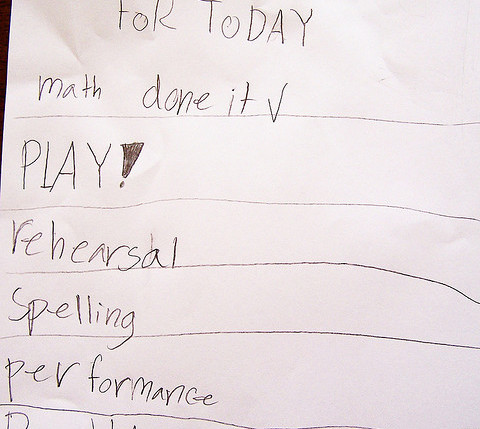 FOR TODAY
math done it ✓
PLAY!
rehearsal
Spelling
performance